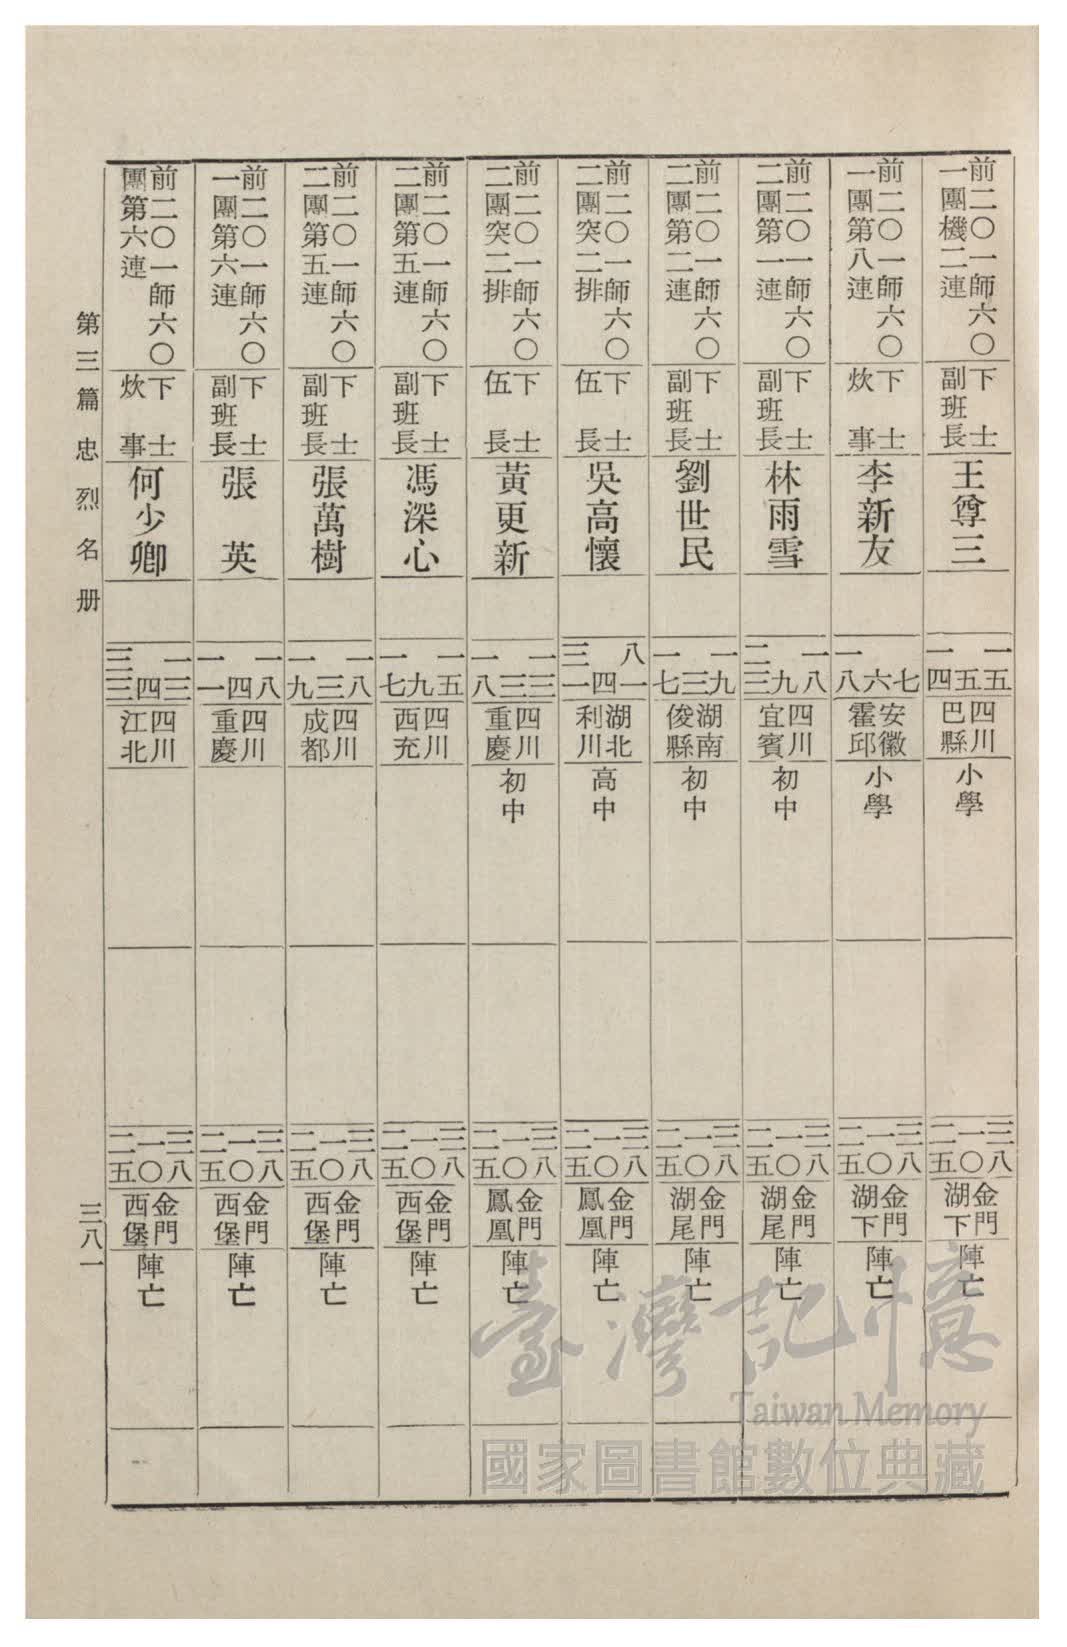 前二〇一師六〇
一團機二連
下士
副班長
王尊三
一五
五
一四
四川
巴縣
小學
三八
一〇
二五
金門
湖下
陣亡
前二〇一師六〇
一團第八連
下士
炊事
李新友
七
六
一八
安徽
霍邱
小學
三八
一〇
二五
金門
湖下
陣亡
前二〇一師六〇
二團第一連
下士
副班長
林雨雪
一八
九
二三
四川
宜賓
初中
三八
一〇
二五
金門
湖尾
陣亡
前二〇一師六〇
二團第二連
下士
副班長
劉世民
一九
三
一七
湖南
俊縣
初中
三八
一〇
二五
金門
湖尾
陣亡
前二〇一師六〇
二團突二排
下士
伍長
吳高懷
八一
四
二一
湖北
利川
高中
三八
一〇
二五
金門
鳳凰
陣亡
前二〇一師六〇
二團突二排
下士
伍長
黃更新
一三
三
一八
四川
重慶
初中
三八
一〇
二五
金門
鳳凰
陣亡
前二〇一師六〇
二團第五連
下士
副班長
馮深心
一五
九
一七
四川
西充
三八
一〇
二五
金門
西堡
陣亡
前二〇一師六〇
二團第五連
下士
副班長
張萬樹
一八
三
一九
四川
成都
三八
一〇
二五
金門
西堡
陣亡
前二〇一師六〇
一團第六連
下士
副班長
張英
一八
四
一一
四川
重慶
三八
一〇
二五
金門
西堡
陣亡
前二〇一師六〇
團第六連
下士
炊事
何少卿
一三
四
二三
四川
江北
三八
一〇
二五
金門
西堡
陣亡
第三篇忠烈名册
三八一
臺灣記憶
Taiwan Memory
國家圖書館數位典藏